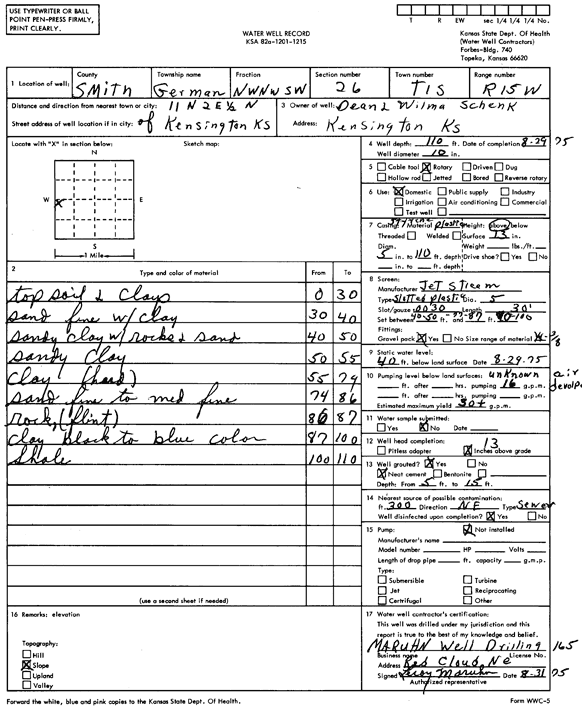 USE TYPEWRITER OR BALL
POINT PEN-PRESS FIRMLY,
PRINT CLEARLY.
WATER WELL RECORD
KSA 82a-1201-1215
T R EW sec 1/4 1/4 1/4 No.
Kansas State Dept. Of Health
(Water Well Contractors)
Forbes-Bldg. 740
Topeka, Kansas 66620
1 Location of well: County Township name Fraction Section number Town number Range number
Smith German NW NW SW 26 T1S R15W
Distance and direction from nearest town or city: 11 N 2 E ½ N
3 Owner of well: Dean & Wilma Schenk
Street address of well location if in city: of Kensington Ks
Address: Kensington Ks
Locate with "X" in section below: Sketch map:
N
W X E
S
1 Mile
2 Type and color of material From To
top soil & Clays 0 30
sand fine w/clay 30 40
sandy clay w/rocks & sand 40 50
sandy Clay 50 55
Clay (hard) 55 74
sand fine to med fine 74 86
rock, (flint) 86 87
clay black to blue color 87 100
Shale 100 110
(use a second sheet if needed)
16 Remarks: elevation
Topography:
Hill
X Slope
Upland
Valley
4 Well depth: 110 ft. Date of completion 8-29 75
Well diameter 10 in.
5 Cable tool X Rotary Driven Dug
Hollow rod Jetted Bored Reverse rotary
6 Use: X Domestic Public supply Industry
Irrigation Air conditioning Commercial
Test well
7 Casing: Material plastic Height: above/below
Threaded Welded Surface 13 in.
Diam. Weight lbs./ft.
5 in. to 110 ft. depth Drive shoe? Yes No
in. to ft. depth
8 Screen:
Manufacturer Jet Stream
Type Slotted plastic Dia. 5
Slot/gauze .0030 Length 30'
Set between 40-50 ft. and 77-87 ft. 90-100
Fittings:
Gravel pack X Yes No Size range of material 1/4 - 3/8
9 Static water level:
40 ft. below land surface Date 8-29-75
10 Pumping level below land surfaces: unknown air
ft. after hrs. pumping 16 g.p.m.
ft. after hrs. pumping g.p.m.
Estimated maximum yield 30+ g.p.m.
11 Water sample submitted:
Yes X No Date
12 Well head completion:
Pitless adapter X 13 Inches above grade
13 Well grouted? X Yes No
X Neat cement Bentonite
Depth: From 5 ft. to 15 ft.
14 Nearest source of possible contamination:
ft. 300 Direction NE Type Sewer
Well disinfected upon completion? X Yes No
15 Pump: X Not installed
Manufacturer's name
Model number HP Volts
Length of drop pipe ft. capacity g.m.p.
Type:
Submersible Turbine
Jet Reciprocating
Certrifugal Other
17 Water well contractor's certification:
This well was drilled under my jurisdiction and this
report is true to the best of my knowledge and belief.
MARUHN Well Drilling 165
Business name License No.
Address Red Cloud, Ne
Signed Leroy Maruhn Date 8-31 75
Authorized representative
Forward the white, blue and pink copies to the Kansas State Dept. Of Health.
Form WWC-5